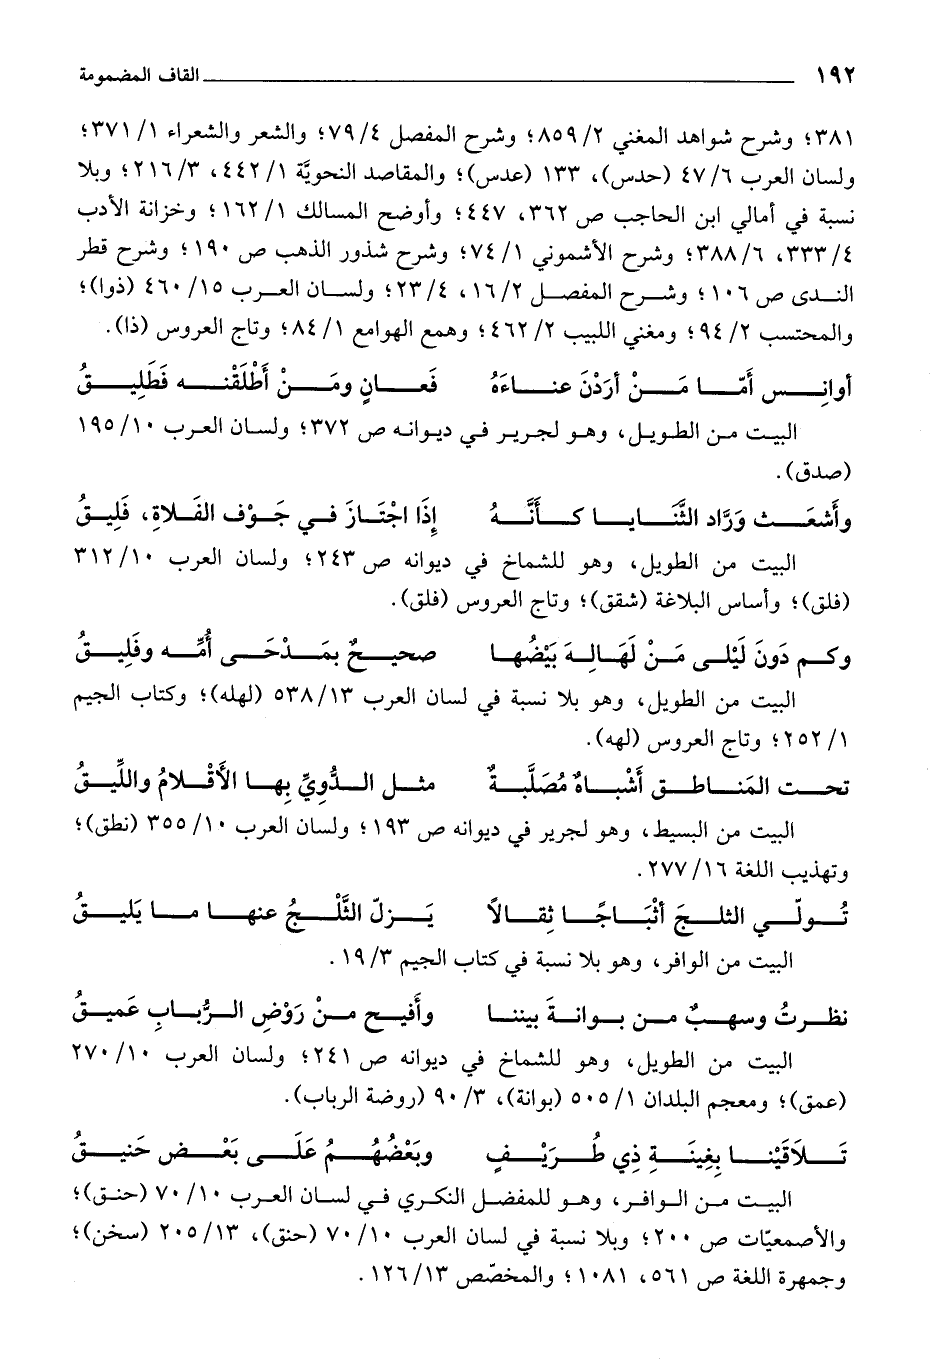 ١٩٢ القاف المضمومة
٣٨١؛ وشرح شواهد المغني ٢/ ٨٥٩؛ وشرح المفصل ٤/ ٧٩؛ والشعر والشعراء ١/ ٣٧١؛
ولسان العرب ٦/ ٤٧ (حدس)، ١٣٣ (عدس)؛ والمقاصد النحويَّة ١/ ٤٤٢، ٣/ ٢١٦؛ وبلا
نسبة في أمالي ابن الحاجب ص ٣٦٢، ٤٤٧؛ وأوضح المسالك ١/ ١٦٢؛ وخزانة الأدب
٤/ ٣٣٣، ٦/ ٣٨٨؛ وشرح الأشموني ١/ ٧٤؛ وشرح شذور الذهب ص ١٩٠؛ وشرح قطر
الندى ص ١٠٦؛ وشرح المفصل ٢/ ١٦، ٤/ ٢٣؛ ولسان العرب ١٥/ ٤٦٠ (ذوا)؛
والمحتسب ٢/ ٩٤؛ ومغني اللبيب ٢/ ٤٦٢؛ وهمع الهوامع ١/ ٨٤؛ وتاج العروس (ذا).
أوانِس أَمّا مَنْ أرَدْنَ عناءَهُ فَعانٍ ومَنْ أَطْلَقْنه فَطَلِيقُ
البيت من الطويل، وهو لجرير في ديوانه ص ٣٧٢؛ ولسان العرب ١٠/ ١٩٥
(صدق).
وأَشعَث وَرَّاد الثَّنَايا كأَنَّهُ إِذَا اجْتَازَ في جَوْف الفَلاةِ، فَلِيقُ
البيت من الطويل، وهو للشماخ في ديوانه ص ٢٤٣؛ ولسان العرب ١٠/ ٣١٢
(فلق)؛ وأساس البلاغة (شقق)؛ وتاج العروس (فلق).
وكم دَونَ لَيْلى مَنْ لَهَالِهَ بَيْضُها صحيحٌ بمَدْحَى أُمِّه وفَلِيقُ
البيت من الطويل، وهو بلا نسبة في لسان العرب ١٣/ ٥٣٨ (لهله)؛ وكتاب الجيم
١/ ٢٥٢؛ وتاج العروس (لهه).
تحت المَناطق أَشْباهٌ مُصَلَّبةٌ مثل الدُّوِيِّ بِها الأَقْلامُ واللِّيقُ
البيت من البسيط، وهو لجرير في ديوانه ص ١٩٣؛ ولسان العرب ١٠/ ٣٥٥ (نطق)؛
وتهذيب اللغة ١٦/ ٢٧٧.
تُولّي الثلجَ أثْبَاجًا ثِقالاً يَزلّ الثَّلْجُ عنها ما يَلِيقُ
البيت من الوافر، وهو بلا نسبة في كتاب الجيم ٣/ ١٩.
نظرتُ وسهبٌ من بوانةَ بيننا وأَفيح منْ رَوْضِ الرُّبابِ عَميقُ
البيت من الطويل، وهو للشماخ في ديوانه ص ٢٤١؛ ولسان العرب ١٠/ ٢٧٠
(عمق)؛ ومعجم البلدان ١/ ٥٠٥ (بوانة)، ٣/ ٩٠ (روضة الرباب).
تَلاَقَيْنا بِغِينَةِ ذِي طُرَيْفٍ وبَعْضُهُمُ عَلَى بَعْض حَنيقُ
البيت من الوافر، وهو للمفضل النكري في لسان العرب ١٠/ ٧٠ (حنق)؛
والأصمعيّات ص ٢٠٠؛ وبلا نسبة في لسان العرب ١٠/ ٧٠ (حنق)، ١٣/ ٢٠٥ (سخن)؛
وجمهرة اللغة ص ٥٦١، ١٠٨١؛ والمخصّص ١٣/ ١٢٦.